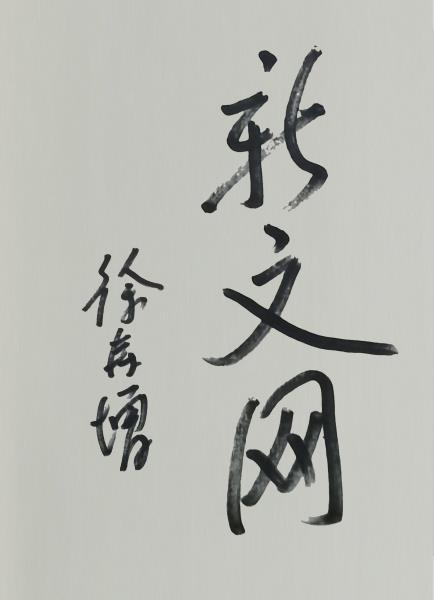 新文网
徐存增